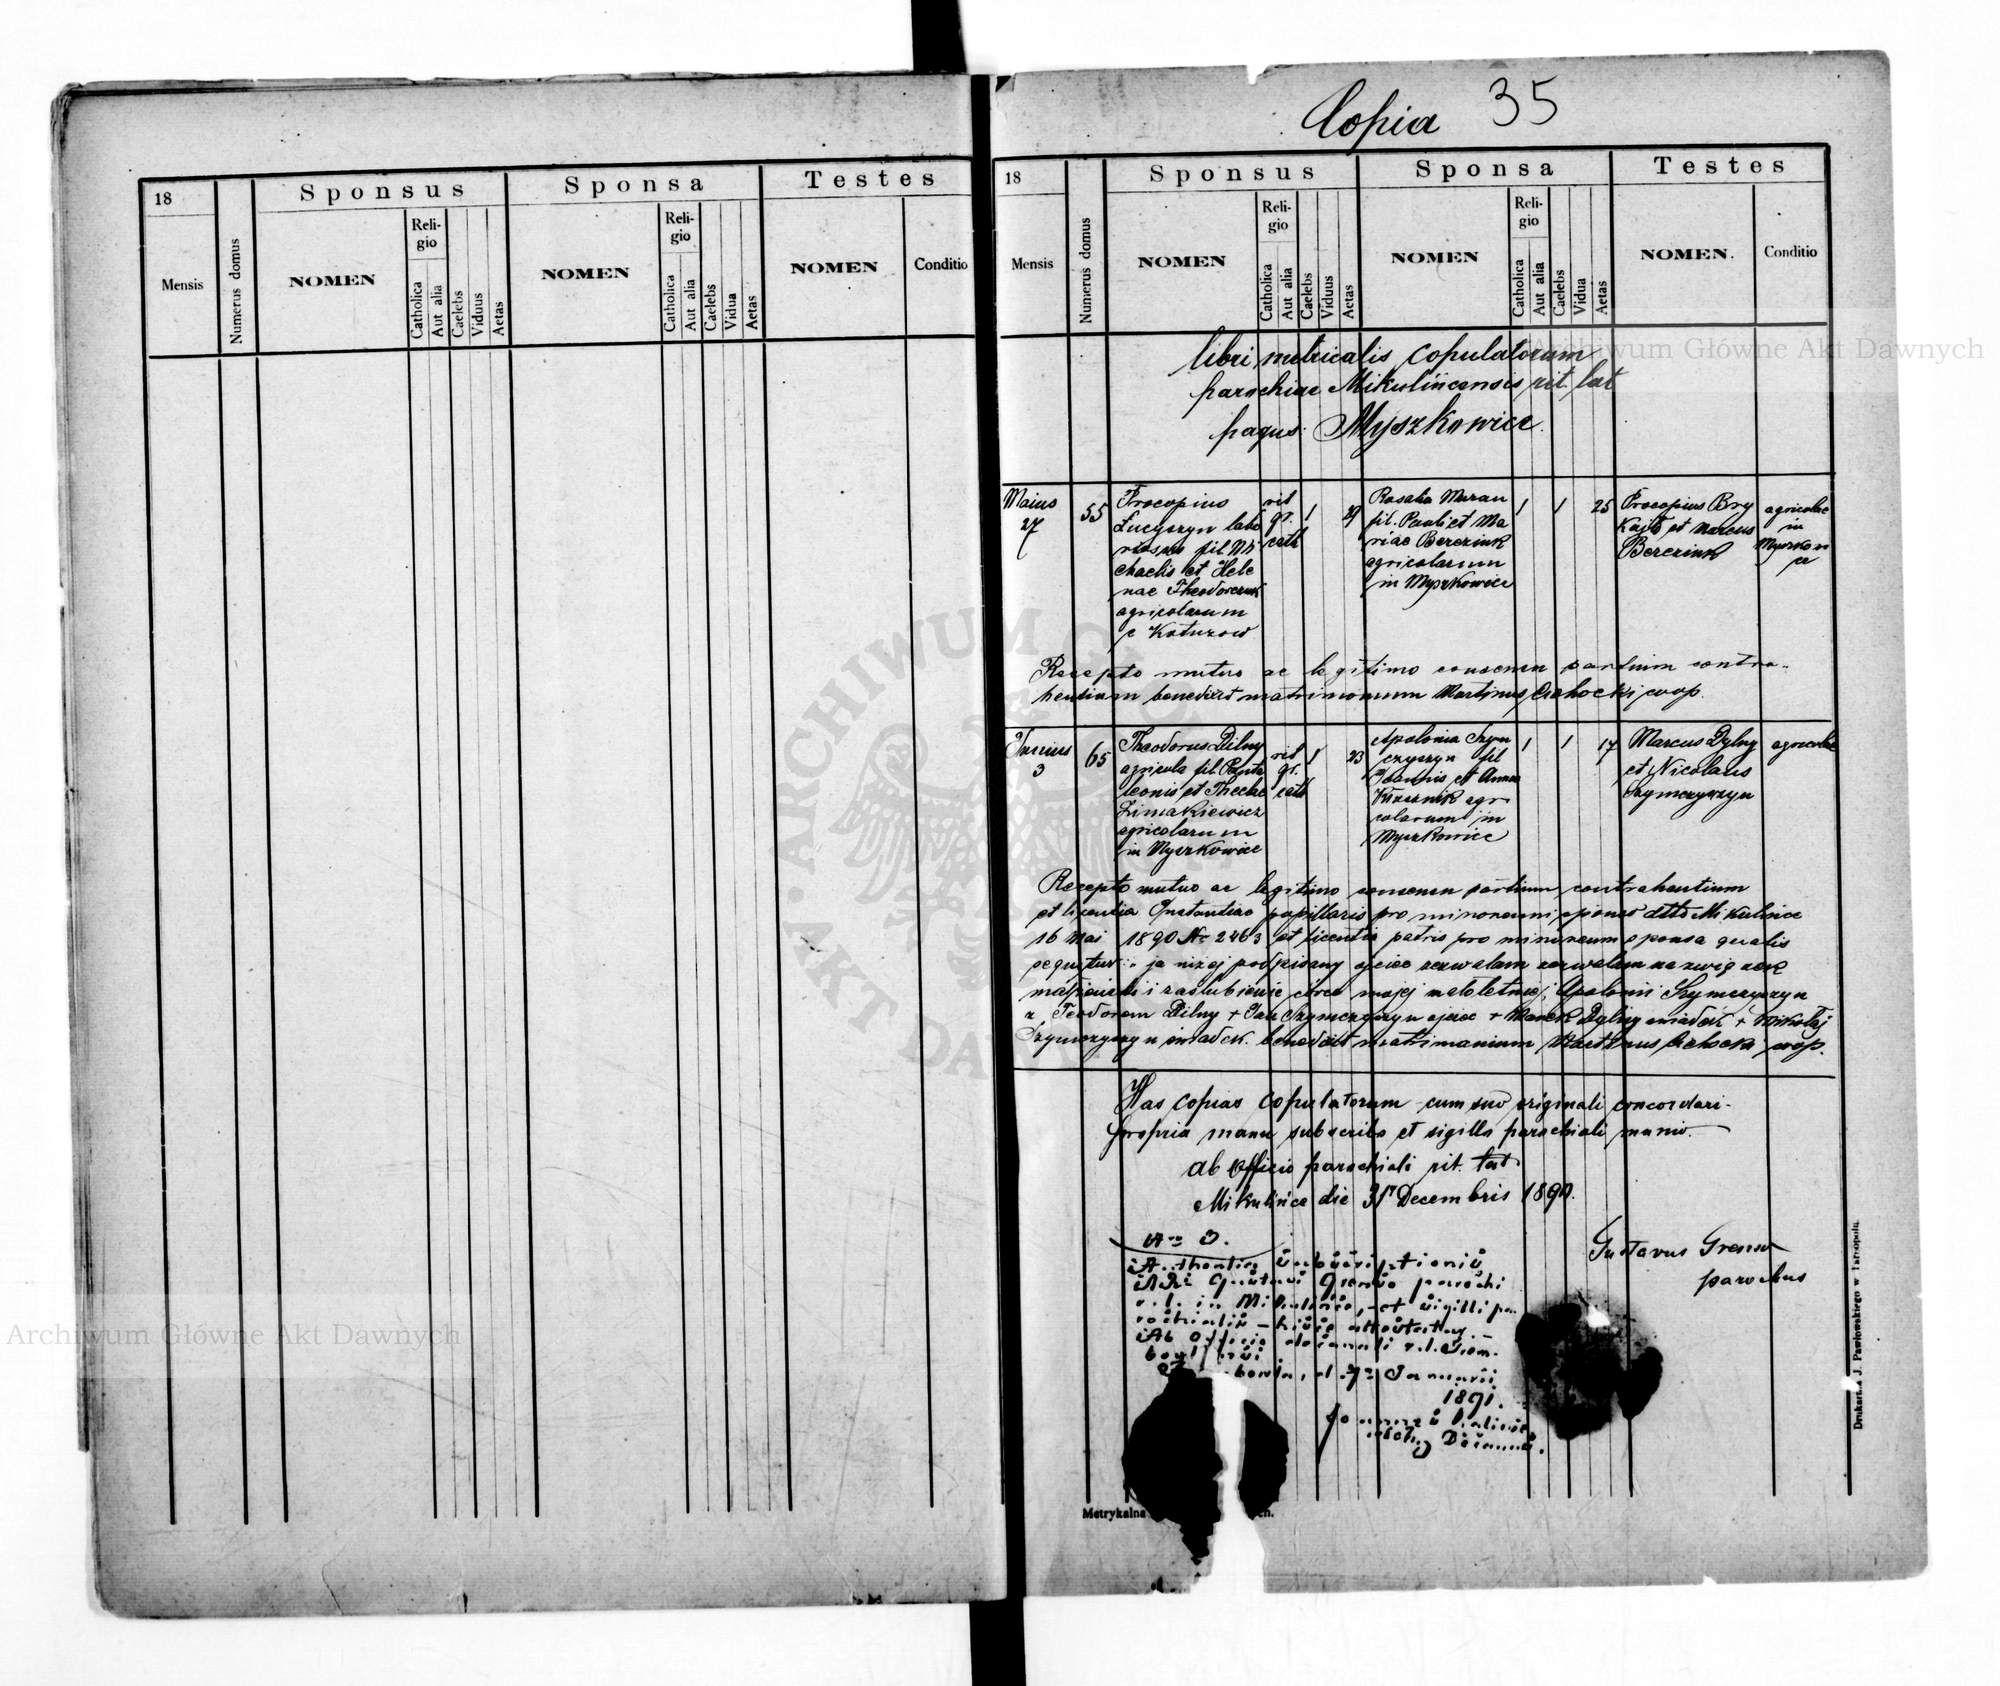 18
Mensis
Numerus domus
Sponsus
NOMEN
Reli-
gio
Catholica
Aut alia
Caelebs
Viduus
Aetas
Sponsa
NOMEN
Reli-
gio
Catholica
Aut alia
Caelebs
Vidua
Aetas
Testes
NOMEN
Conditio
Copia 35
18
Mensis
Numerus domus
Sponsus
NOMEN
Reli-
gio
Catholica
Aut alia
Caelebs
Viduus
Aetas
Sponsa
NOMEN
Reli-
gio
Catholica
Aut alia
Caelebs
Vidua
Aetas
Testes
NOMEN.
Conditio
libri metricalis copulatorum
parochiae Mikulincensis rit. lat
pagus Myszkowice.
Maius
27
55
Procopius
Łucyszyn labo
riosus fil. Mi
chaelis et Hele
nae Theodorczuk
agricolarum
e Koturow
rit
gr.
cath
1
29
Rosalia Maran
fil. Pauli et Ma
riae Bereziuk
agricolarum
in Myszkowice
1
1
25
Procopius Bry
kajło et Marcus
Bereziuk
agricolae
in
Myszkowi
ce
Recepto mutuo ac legitimo consensu partium contra-
hentium benedixit matrimonium Martinus Cichocki coop.
Junius
3
65
Theodorus Dilny
agricola fil. Panta
leonis et Theclae
Zimakiewicz
agricolarum
in Myszkowice
rit
gr.
cath
1
23
Apolonia Szym
czyszyn fil
Joannis et Annae
agri
colarum in
Myszkowice
1
1
17
Marcus Dylny
et Nicolaus
Szymczyszyn
agricolae
Recepto mutuo ac legitimo consensu partium contrahentium
et licentia Instantiae pupillaris pro minorenni sponso dtto Mikulince
16 Mai 1890 Nr 2463 et licentia patris pro minorenni sponsa qualis
sequitur: ja niżej podpisany ojciec zezwalam zezwalam na związek
małżeński i zaślubienie córce mojej małoletniej Apolonii Szymczyszyn
z Teodorem Dilny + Jan Szymczyszyn ojciec + Marek Dylny świadek + Mikołaj
Szymczyszyn świadek. benedixit matrimonium Martinus Cichocki coop.
Has copias copulatorum cum suo originali concordari
propria manu subscribo et sigillo parochiali munio.
ab Officio parochiali rit. lat
Mikulince die 31 Decembris 1890.
Gustavus
parochus
No 3.
parochi
r. l. in Mikulince, et sigilli pa
rochialis
Ab officio decanali r. l.
Januarii
1891.
Metrykalna
Drukarnia J. Pawłowskiego w Tarnopolu.
Archiwum Główne Akt Dawnych
Archiwum Główne Akt Dawnych
ARCHIWUM GŁÓWNE AKT DAWNYCH